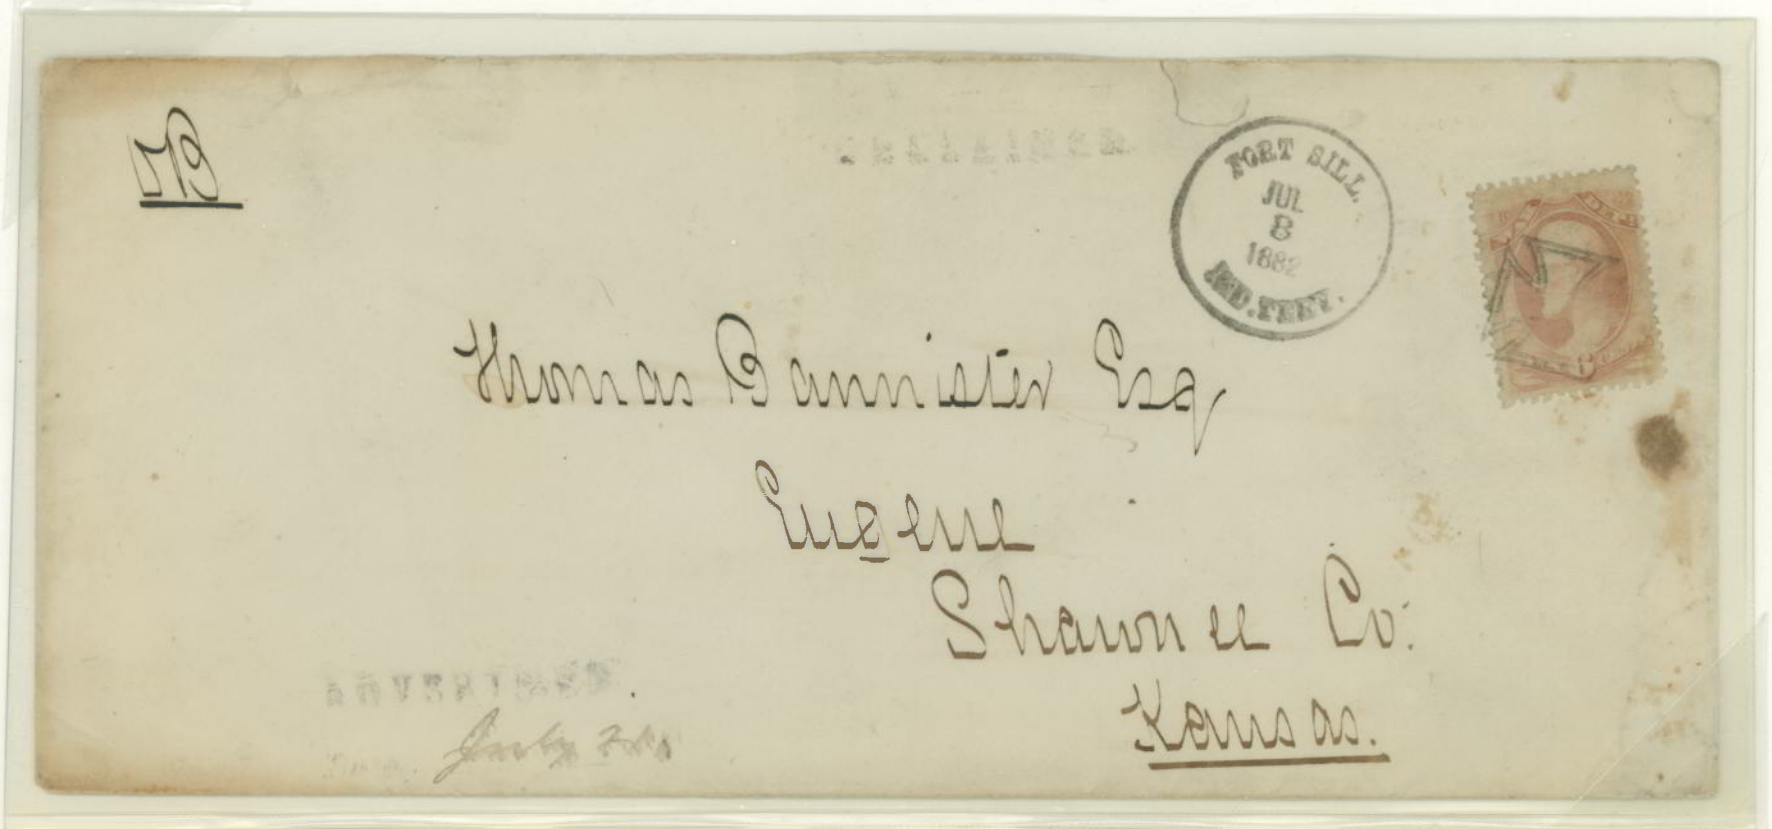 FORT SILL
JUL
8
1882
IND. TERY.
Thomas Bannister Esq
Eugene
Shawnee Co:
Kansas.
ADVERTISED
July